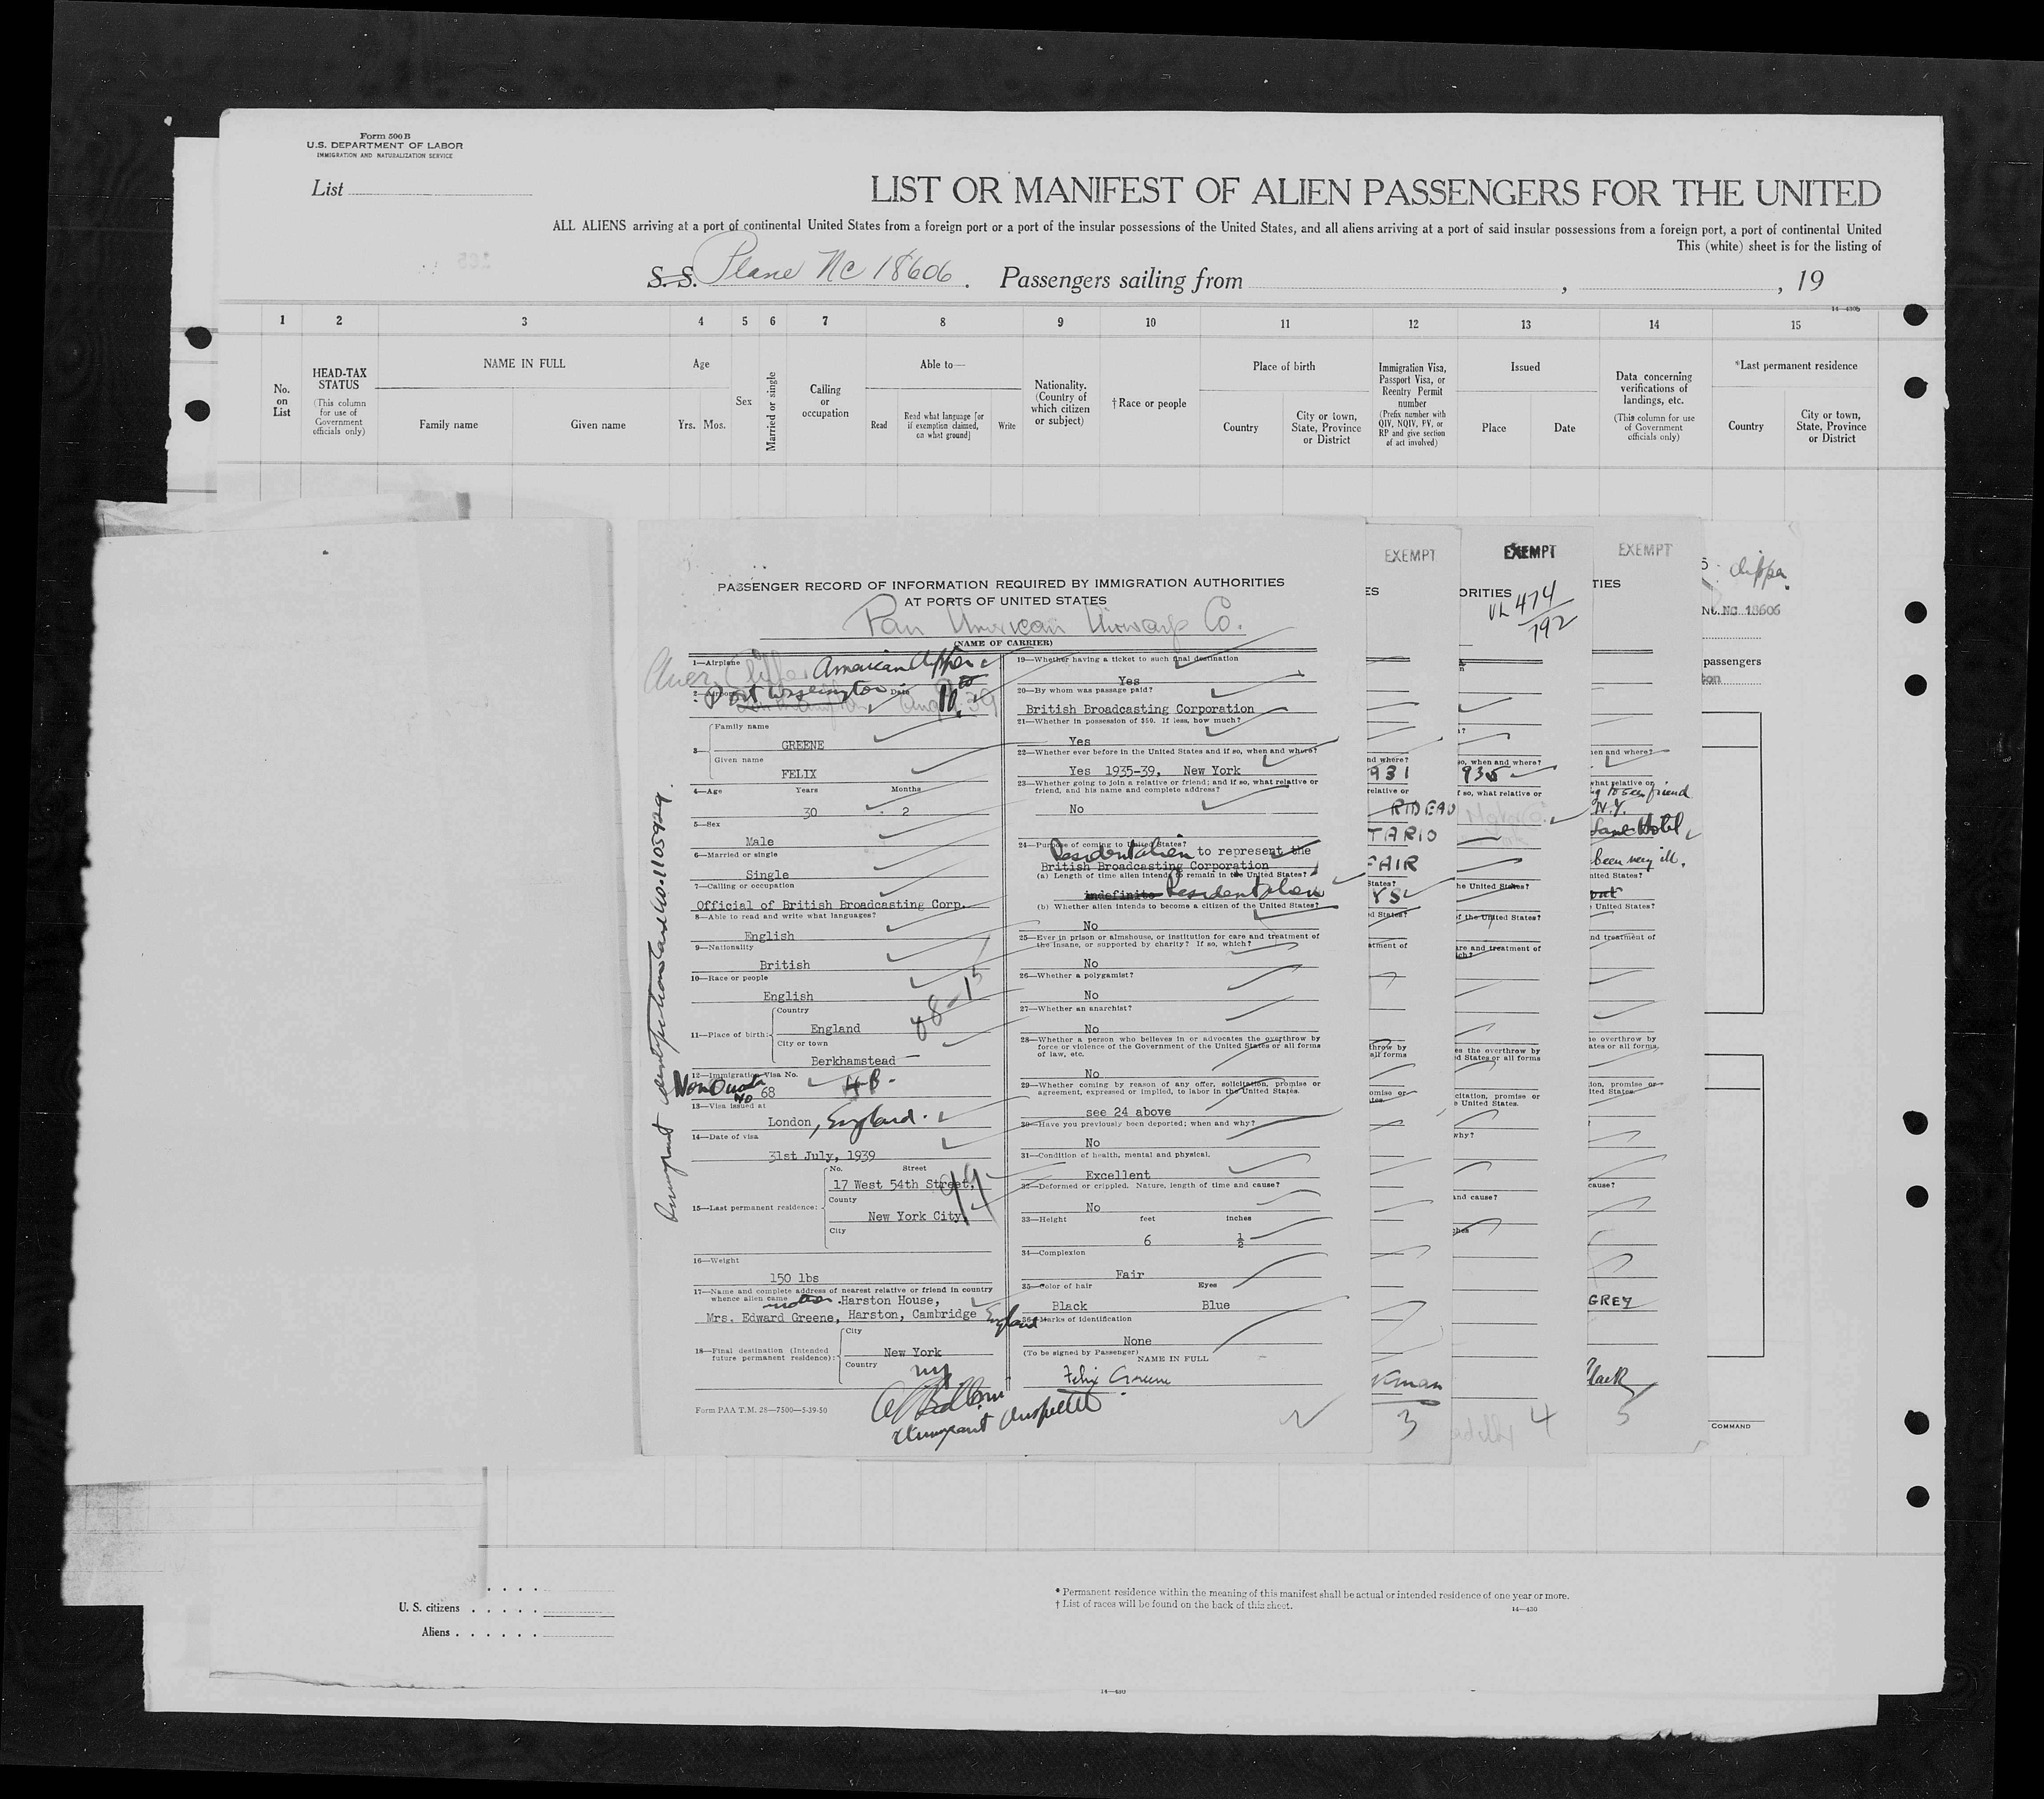 Form 500 B
U.S. DEPARTMENT OF LABOR
IMMIGRATION AND NATURALIZATION SERVICE
List
LIST OR MANIFEST OF ALIEN PASSENGERS FOR THE UNITED
ALL ALIENS arriving at a port of continental United States from a foreign port or a port of the insular possessions of the United States, and all aliens arriving at a port of said insular possessions from a foreign port, a port of continental United
This (white) sheet is for the listing of
S. S. Plane NC 18606. Passengers sailing from , , 19
14—430b
1 2 3 4 5 6 7 8 9 10 11 12 13 14 15
No. on List
HEAD-TAX STATUS (This column for use of Government officials only)
NAME IN FULL
Family name
Given name
Age
Yrs. Mos.
Sex
Married or single
Calling or occupation
Able to—
Read
Read what language [or if exemption claimed, on what ground]
Write
Nationality. (Country of which citizen or subject)
†Race or people
Place of birth
Country
City or town, State, Province or District
Immigration Visa, Passport Visa, or Reentry Permit number (Prefix number with QIV, NQIV, PV, or RP and give section of act involved)
Issued
Place
Date
Data concerning verifications of landings, etc. (This column for use of Government officials only)
*Last permanent residence
Country
City or town, State, Province or District
PASSENGER RECORD OF INFORMATION REQUIRED BY IMMIGRATION AUTHORITIES
AT PORTS OF UNITED STATES
Pan American Airways Co.
(NAME OF CARRIER)
1—Airplane American Clipper
2—Airport Port Washington Date Aug 39
3—
Family name
GREENE
Given name
FELIX
4—Age Years Months
30 2
5—Sex
Male
6—Married or single
Single
7—Calling or occupation
Official of British Broadcasting Corp.
8—Able to read and write what languages?
English
9—Nationality
British
10—Race or people
English
48-15
11—Place of birth:
Country
England
City or town
Berkhamstead
12—Immigration Visa No.
Non Quota No 68 4-B.
13—Visa issued at
London, England.
14—Date of visa
31st July, 1939
15—Last permanent residence:
No. Street
17 West 54th Street,
County
New York City
City
16—Weight
150 lbs
17—Name and complete address of nearest relative or friend in country
whence alien came mother. Harston House,
Mrs. Edward Greene, Harston, Cambridge England
18—Final destination (Intended future permanent residence):
City
New York
Country
NY
Immigrant Inspector
Form PAA T.M. 28—7500—5-39-50
Immigrant identification Card No. 1105929.
19—Whether having a ticket to such final destination
Yes
20—By whom was passage paid?
British Broadcasting Corporation
21—Whether in possession of $50. If less, how much?
Yes
22—Whether ever before in the United States and if so, when and where?
Yes 1935-39, New York
23—Whether going to join a relative or friend; and if so, what relative or
friend, and his name and complete address?
No
24—Purpose of coming to United States?
Resident alien to represent the
British Broadcasting Corporation
(a) Length of time alien intends to remain in the United States?
indefinite Resident alien
(b) Whether alien intends to become a citizen of the United States?
No
25—Ever in prison or almshouse, or institution for care and treatment of
the insane, or supported by charity? If so, which?
No
26—Whether a polygamist?
No
27—Whether an anarchist?
No
28—Whether a person who believes in or advocates the overthrow by
force or violence of the Government of the United States or all forms
of law, etc.
No
29—Whether coming by reason of any offer, solicitation, promise or
agreement, expressed or implied, to labor in the United States.
see 24 above
30—Have you previously been deported; when and why?
No
31—Condition of health, mental and physical.
Excellent
32—Deformed or crippled. Nature, length of time and cause?
No
33—Height feet inches
6 ½
34—Complexion
Fair
35—Color of hair Eyes
Black Blue
36—Marks of identification
None
(To be signed by Passenger)
NAME IN FULL
Felix Greene
EXEMPT
ES
nd where?
931
relative or
RIDEAU
TARIO
FAIR
States?
YS
d States?
atment of
throw by
all forms
omise or
3
EXEMPT
ORITIES
VL 474/792
so, when and where?
935
f so, what relative or
he United States?
f the United States?
are and treatment of
ich?
es the overthrow by
d States or all forms
citation, promise or
e United States.
why?
and cause?
ches
4
EXEMPT
TIES
en and where?
what relative or
g to see friend
N.Y.
Hotel
been very ill.
nited States?
United States?
nd treatment of
e overthrow by
ates or all forms
ion, promise or
ited States.
cause?
GREY
Black
5
Clipper
NC 18606
passengers
ton
COMMAND
U. S. citizens
Aliens
* Permanent residence within the meaning of this manifest shall be actual or intended residence of one year or more.
† List of races will be found on the back of this sheet.
14—430
14—430